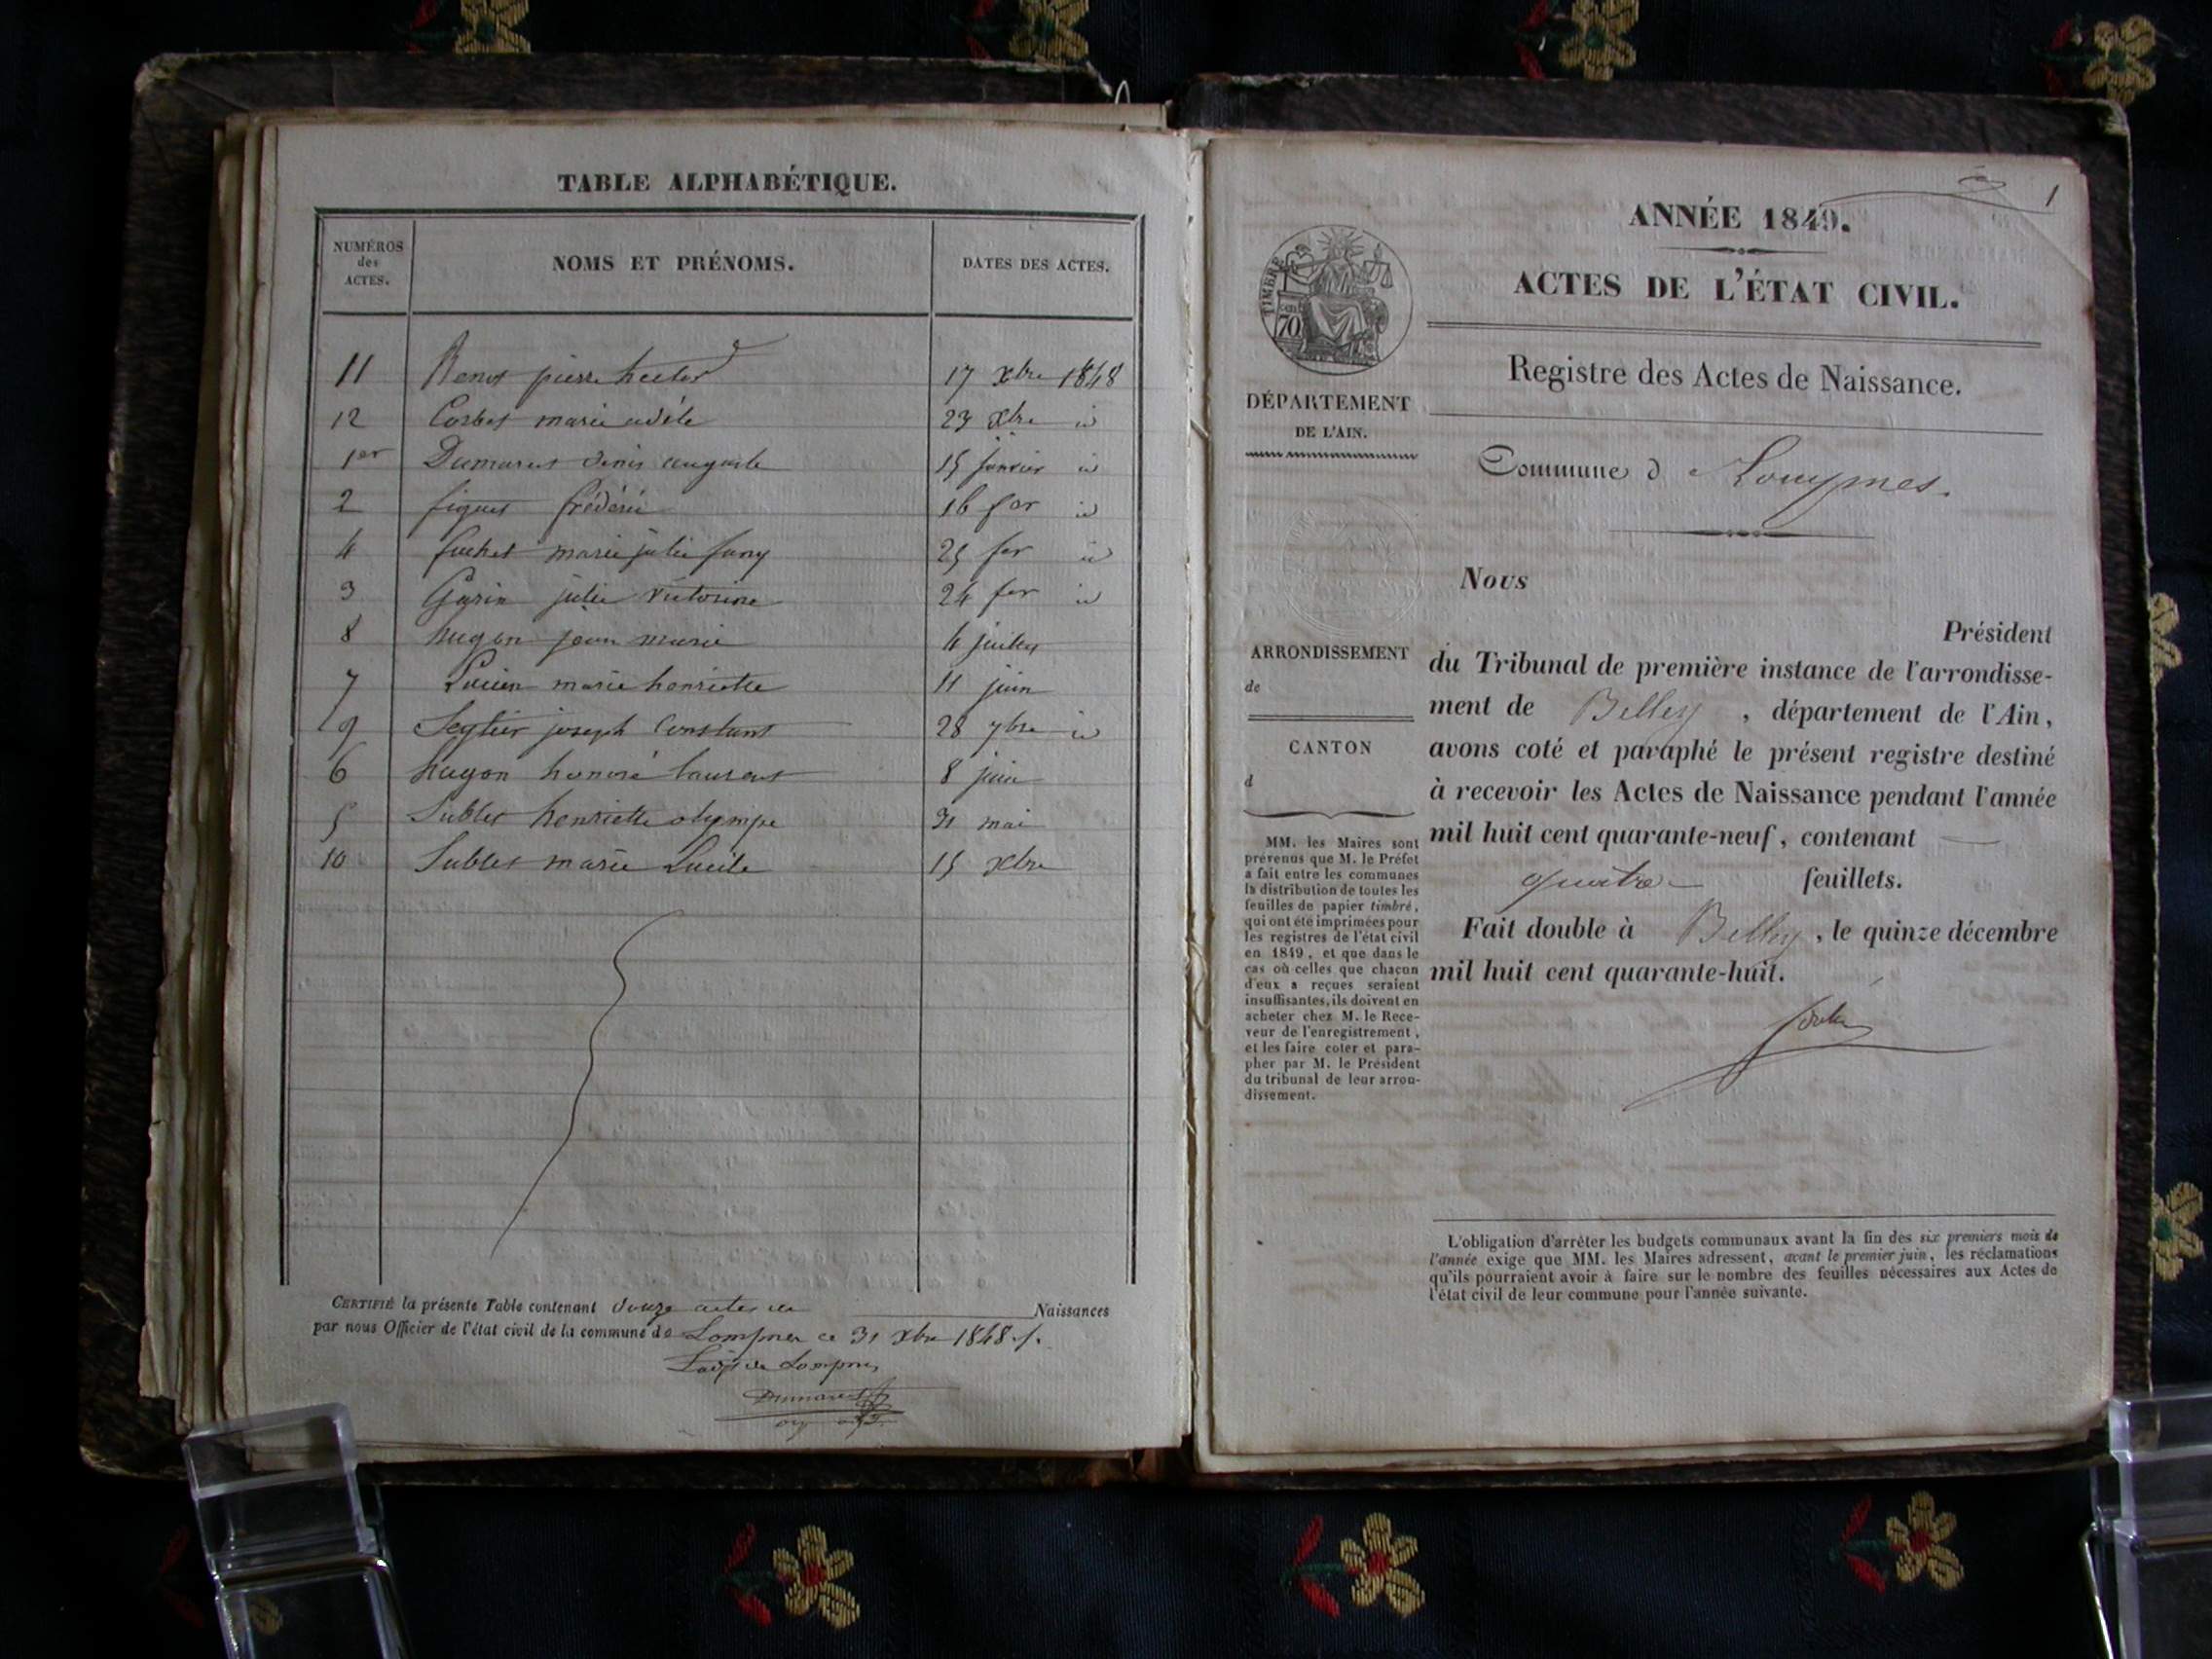 TABLE ALPHABÉTIQUE.
NUMÉROS
des
ACTES.
NOMS ET PRÉNOMS.
DATES DES ACTES.
11 pierre hector 17 xbre 1848
12 Corbet marie adéle 23 xbre id
1er Dumarest denis auguste 15 janvier id
2 figuet frédéric 16 fer id
4 fuchet marie julie fany 25 fer id
3 Garin julie victorine 24 fer id
8 hugon jean marie 4 juillet
7 Lucien marie henriette 11 juin
9 joseph Constant 28 7bre id
6 hugon honoré laurent 8 juin
5 Sublet henriette olympe 31 mai
10 Sublet marie Lucile 15 xbre
CERTIFIÉ la présente Table contenant douze actes de Naissances
par nous Officier de l'état civil de la commune de Lompnes ce 31 xbre 1848 ./.
Lompnes
Dumarest
1
ANNÉE 1849.
ACTES DE L'ÉTAT CIVIL.
TIMBRE
70
Registre des Actes de Naissance.
DÉPARTEMENT
DE L'AIN.
Commune d Lompnes.
Nous
Président
ARRONDISSEMENT
de
CANTON
d
du Tribunal de première instance de l'arrondisse-
ment de Belley, département de l'Ain,
avons coté et paraphé le présent registre destiné
à recevoir les Actes de Naissance pendant l'année
mil huit cent quarante-neuf, contenant
quatre feuillets.
Fait double à Belley, le quinze décembre
mil huit cent quarante-huit.
MM. les Maires sont
prévenus que M. le Préfet
a fait entre les communes
la distribution de toutes les
feuilles de papier timbré,
qui ont été imprimées pour
les registres de l'état civil
en 1849, et que dans le
cas où celles que chacun
d'eux a reçues seraient
insuffisantes, ils doivent en
acheter chez M. le Rece-
veur de l'enregistrement,
et les faire coter et para-
pher par M. le Président
du tribunal de leur arron-
dissement.
L'obligation d'arrêter les budgets communaux avant la fin des six premiers mois de
l'année exige que MM. les Maires adressent, avant le premier juin, les réclamations
qu'ils pourraient avoir à faire sur le nombre des feuilles nécessaires aux Actes de
l'état civil de leur commune pour l'année suivante.